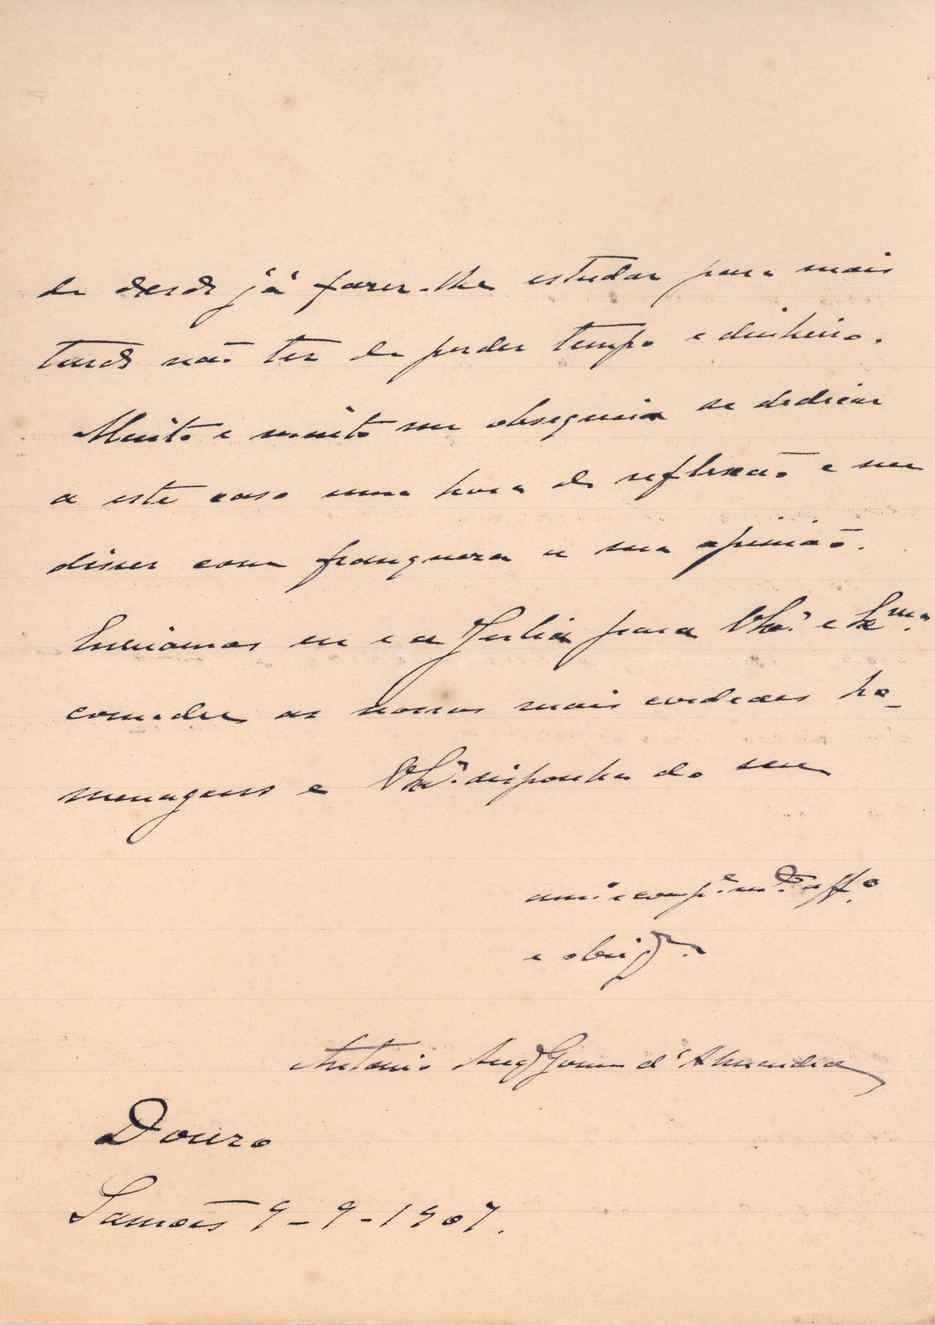 de desde já fazer-lhe estudar para mais
tarde não ter de perder tempo e dinheiro.
Muito e muito me obsequeia se dedicar
a este caso uma hora de reflexão e me
disser com franqueza a sua opinião.
Enviamos eu e a Julia para V. Ex.ª e Ex.mas
as nossas mais cordeaes ho-
menagens e V. Ex.ª disponha do seu
am.º e comp.e m.to aff.º
e obrig.mo
Antonio Aug.to Gomes d'Almendra
Douro
Samões 9-9-1907.